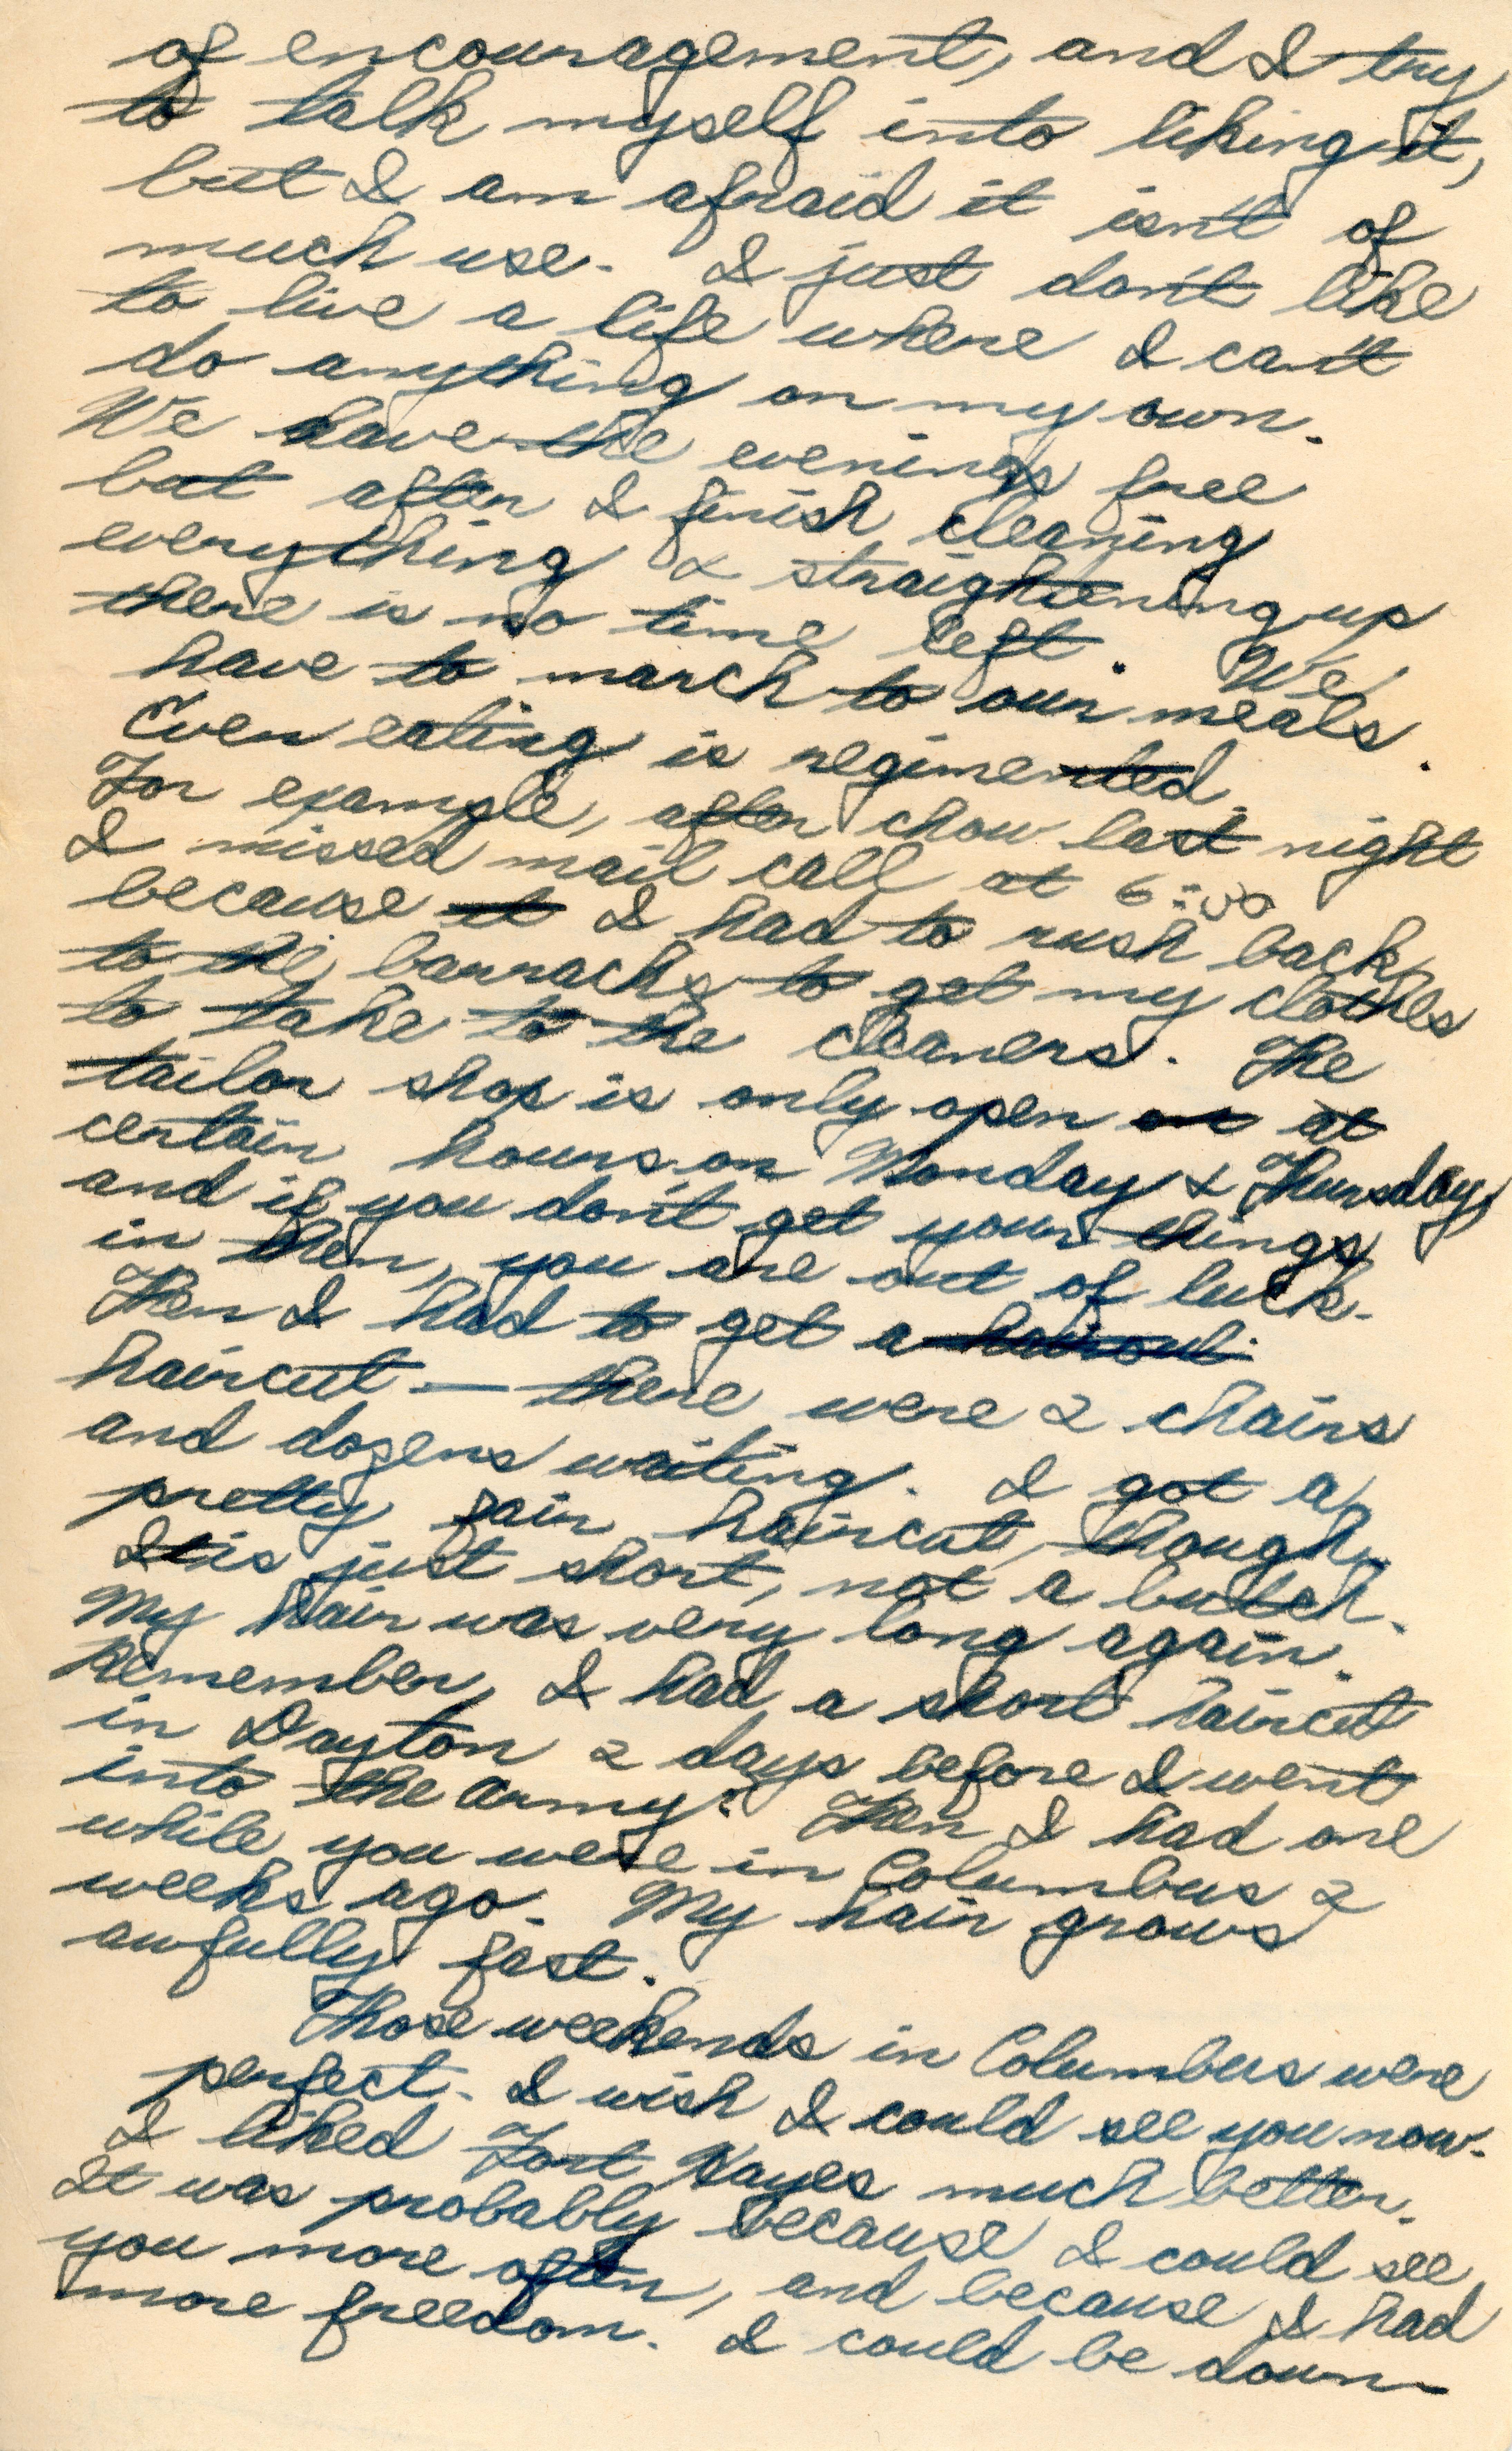 of encouragement, and I try
to talk myself into liking it,
but I am afraid it isn't of
much use. I just don't like
to live a life where I can't
do anything on my own.
We have the evenings free
but after I finish cleaning
everything & straightening up
there is no time left. We
have to march to our meals.
Even eating is regimented.
For example, after chow last night
I missed mail call at 6:00
because it I had to rush back
to the barracks to get my clothes
to take to the cleaners. The
tailor shop is only open at
certain hours on Monday & Thursday,
and if you don't get your things
in then, you are out of luck.
Then I had to get a haircut
haircut — there were 2 chairs
and dozens waiting. I got a
pretty fair haircut, though,
It is just short, not a butch.
My hair was very long again.
Remember, I had a short haircut
in Dayton 2 days before I went
into the army? Then I had one
while you were in Columbus 2
weeks ago. My hair grows
awfully fast.
Those weekends in Columbus were
perfect. I wish I could see you now.
I liked Fort Hayes much better.
It was probably because I could see
you more often, and because I had
more freedom. I could be down-